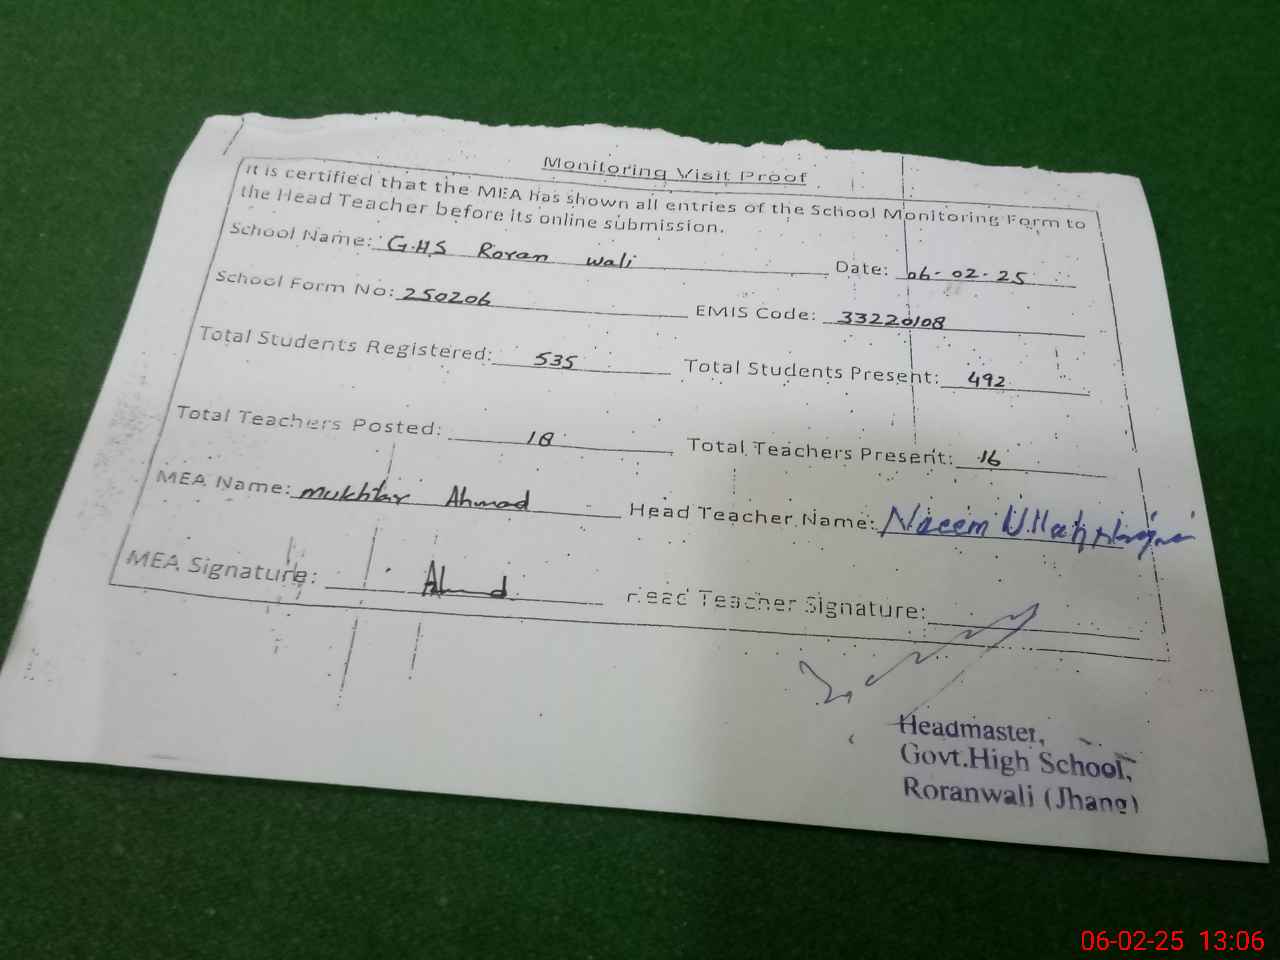 Monitoring Visit Proof
It is certified that the MEA has shown all entries of the School Monitoring Form to
the Head Teacher before its online submission.
School Name: G.H.S Roran wali Date: 06-02-25
School Form No: 250206 EMIS Code: 33220108
Total Students Registered: 535 Total Students Present: 492
Total Teachers Posted: 18 Total Teachers Present: 16
MEA Name: Mukhtar Ahmad Head Teacher Name: Naeem Ullah
MEA Signature: Ahmad Head Teacher Signature:
Headmaster,
Govt.High School,
Roranwali (Jhang)
06-02-25 13:06